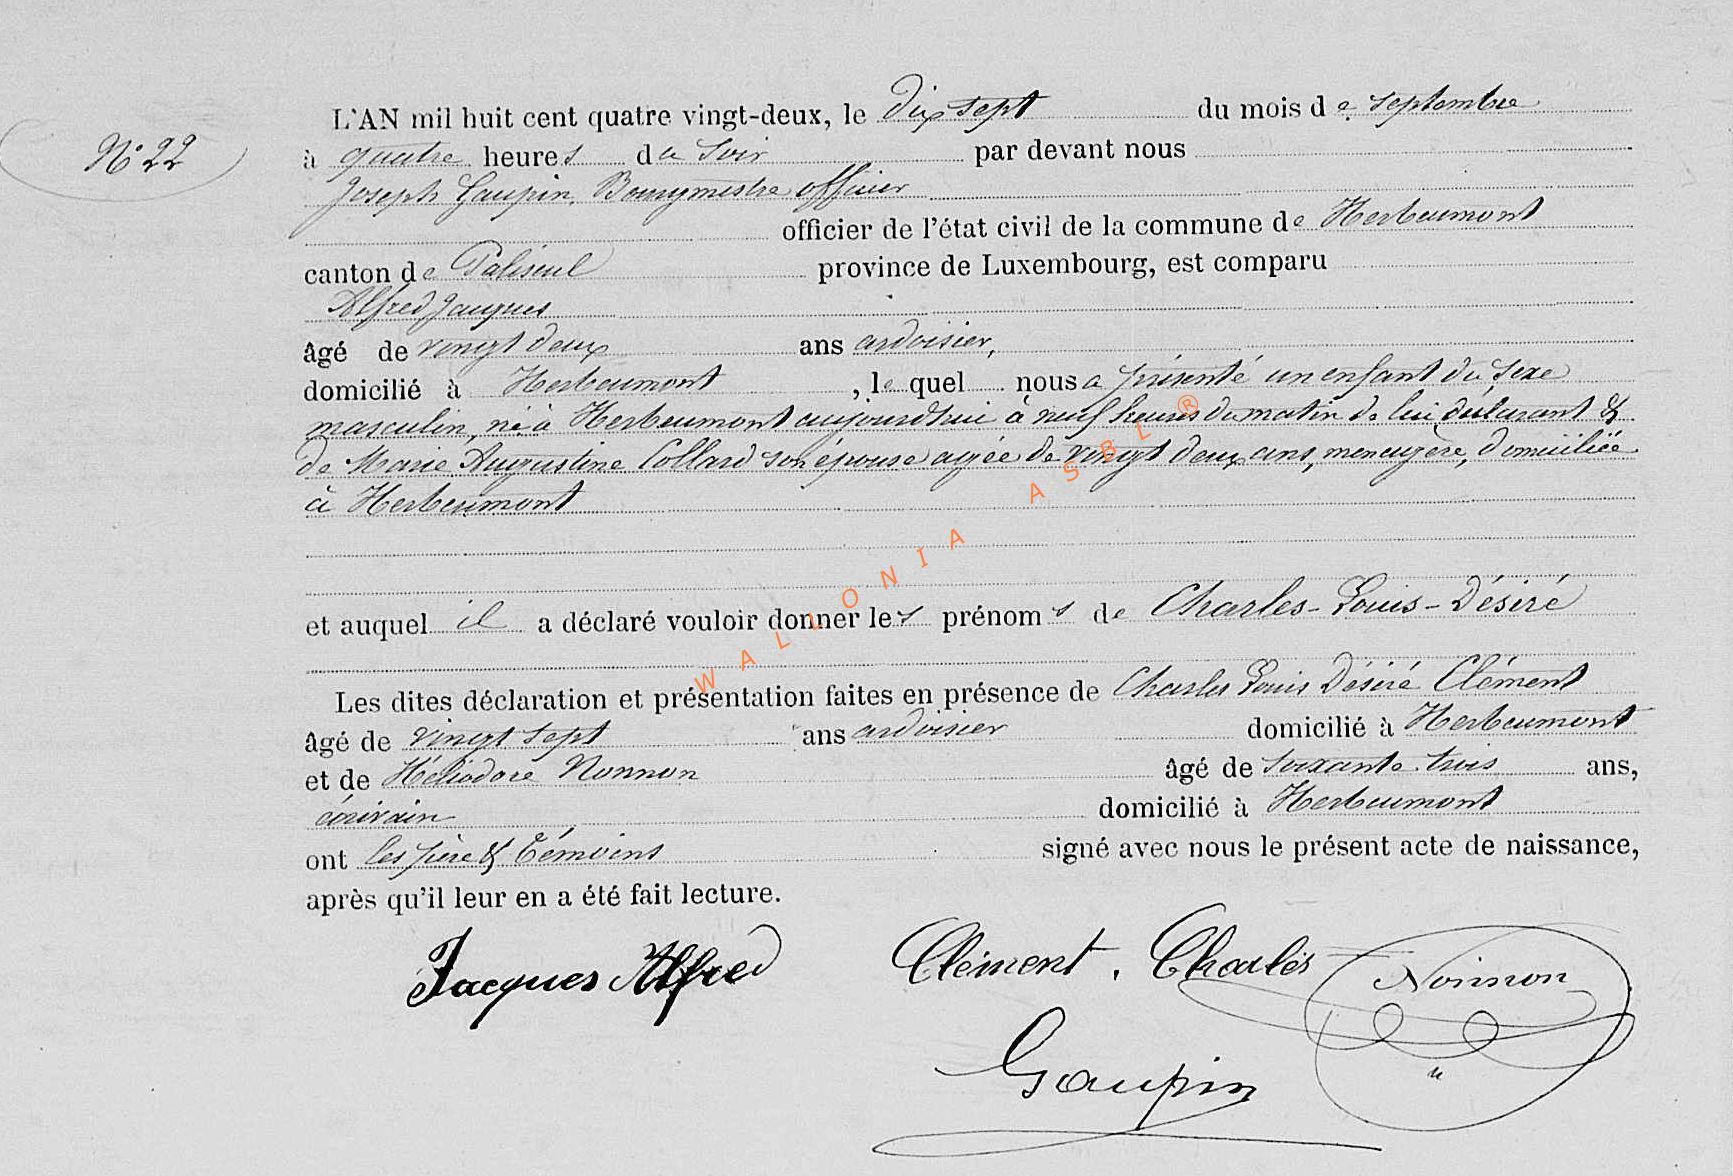 L'AN mil huit cent quatre vingt-deux, le dix sept du mois de septembre
N° 22
à quatre heures du soir par devant nous
Joseph Gaupin, Bourgmestre officier
officier de l'état civil de la commune de Herbeumont
canton de Paliseul province de Luxembourg, est comparu
Alfred Jacques
âgé de vingt deux ans ardoisier,
domicilié à Herbeumont, le quel nous a présenté un enfant du sexe
masculin, né à Herbeumont aujourd'hui à neuf heures du matin de lui déclarant &
de Marie Augustine Collard son épouse agée de vingt deux ans, menagère, domiciliée
à Herbeumont
et auquel il a déclaré vouloir donner les prénoms de Charles-Louis-Désiré
Les dites déclaration et présentation faites en présence de Charles Louis Désiré Clément
âgé de vingt sept ans ardoisier domicilié à Herbeumont
et de Héliodore Nonnon âgé de soixante trois ans,
écrivain domicilié à Herbeumont
ont les père & témoins signé avec nous le présent acte de naissance,
après qu'il leur en a été fait lecture.
Jacques Alfred Clément. Charles Nonnon
Gaupin
WALLONIA ASBL ®